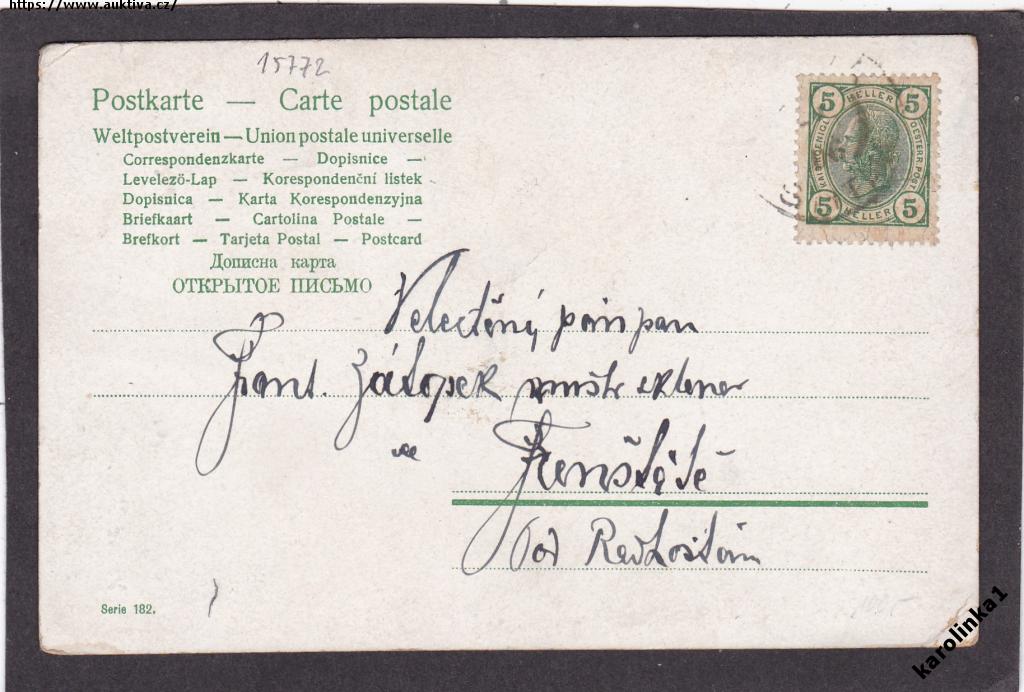 https://www.auktiva.cz/
15772
Postkarte — Carte postale
Weltpostverein — Union postale universelle
Correspondenzkarte — Dopisnice —
Levelező-Lap — Korespondenční listek
Dopisnica — Karta Korespondenzyjna
Briefkaart — Cartolina Postale —
Brefkort — Tarjeta Postal — Postcard
Дописна карта
ОТКРЫТОЕ ПИСЬМО
5 HELLER 5
KAIS. KOENIGL. OESTERR. POST
5 HELLER 5
Velectěný pán pan
Frant. Zátopek
ve
Frenštátě
pod Radhoštěm
Serie 182.
karolinka1